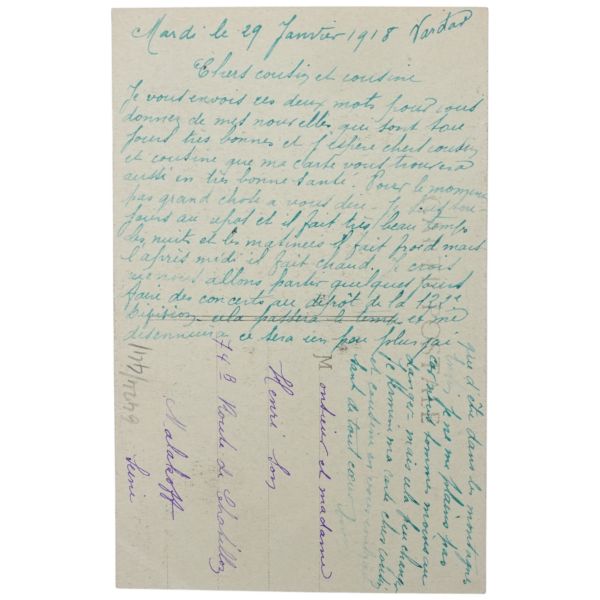 Mardi le 29 Janvier 1918 Vardar
Chers cousin et cousine
Je vous envois ces deux mots pour vous
donnez de mes nouvelles qui sont tou
jours très bonnes et j'espère chers cousin
et cousine que ma carte vous trouvera
aussi en très bonne santé. Pour le moment
pas grand chose a vous dire. Je suis tou-
jours au repot et il fait très beau temps
les nuits et les matinees il fait froid mais
l'après midi il fait chaud. Je crois
que nous allons partir quelques jours
faire des concerts au dépôt de la 122ème
Division cela passera le temps et me
desennuira ce sera un peu plus gai
que d'être dans les montagnes
Je ne me plains pas
car nous sommes moins au
danger mais cela peu changer
je termine ma carte chers cousin
et cousine en vous
tant de tout cœur
Monsieur et madame
Henri
74B Route de Chatillon
Malakoff
Seine